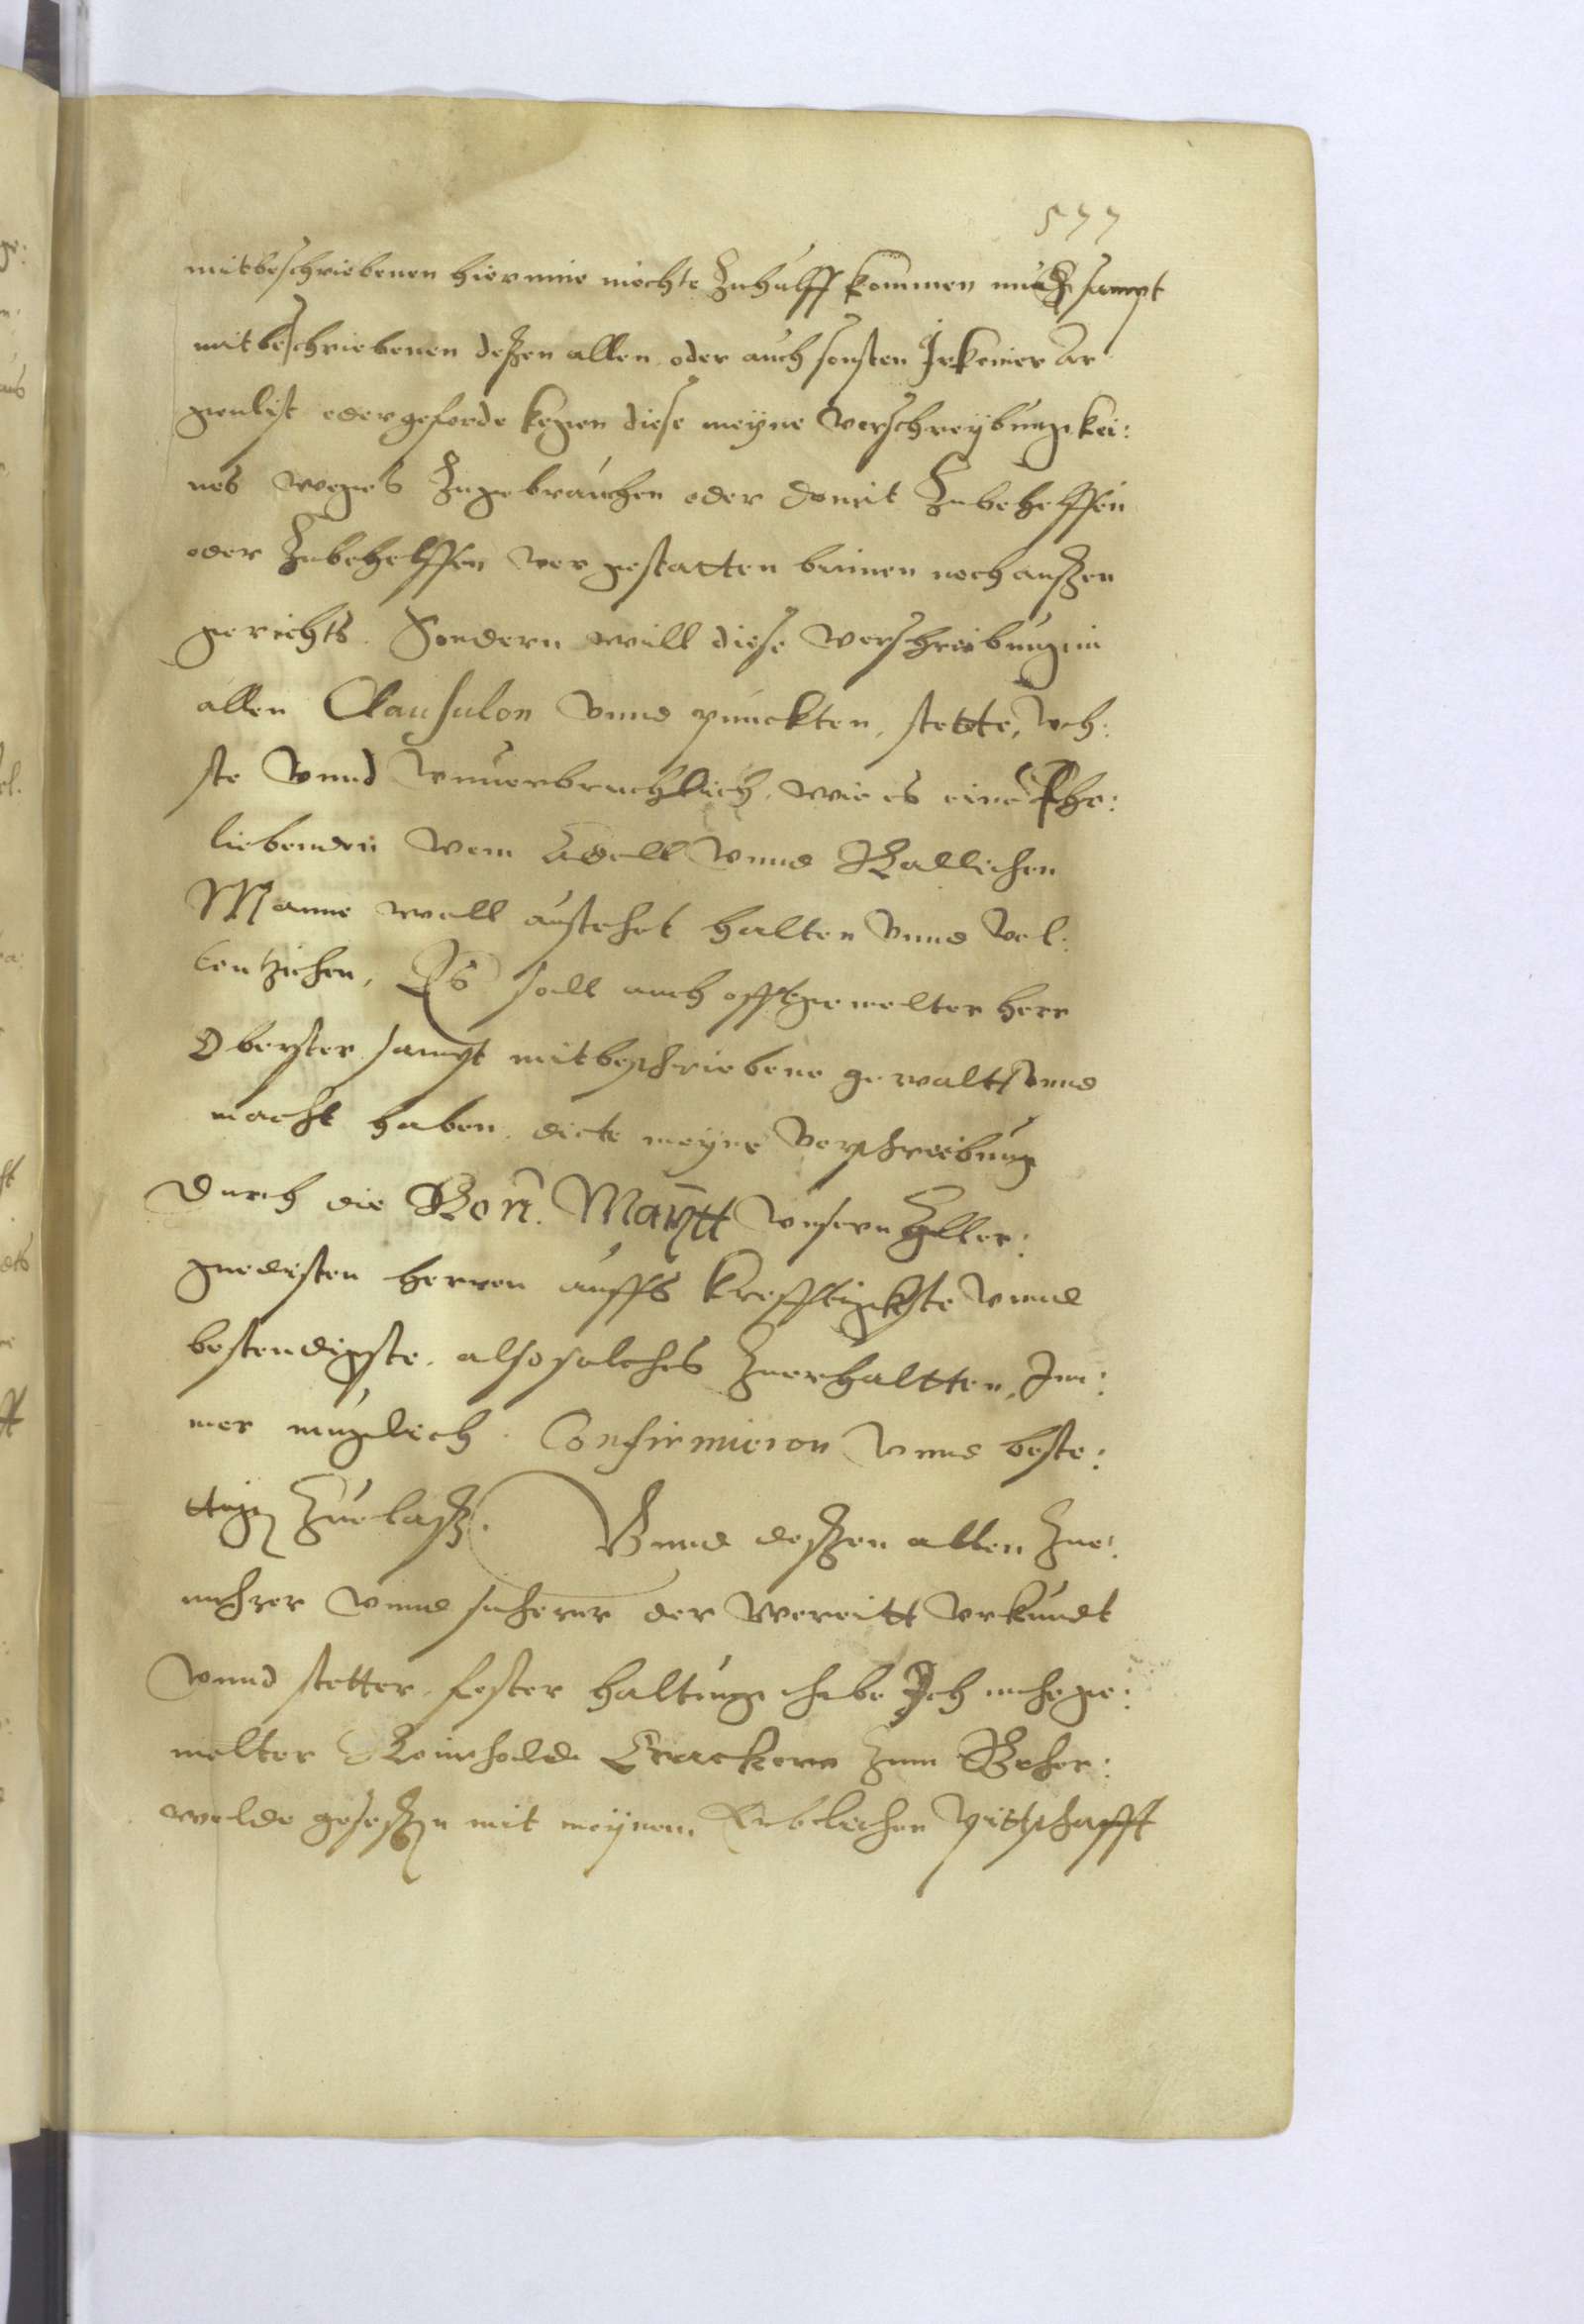 577
mitbeschriebenen hierinne mochte Zuhulff kommen mich sampt
mitbeschriebenen deßen allen oder auch sonsten Jrkeiner Ar
genlist oder geferde kegen diese meyne Verschreybung kei:
nes weges Zugebrauchen oder domit Zubehelffen
oder Zubehelffen vor gestatten binnen noch außen
gerichts. Sondern will diese verschreibung in
allen Clausulen vnnd punckten, stette, veh:
ste vnnd vnuerbruchlich wie es eine Ehr:
liebenden vom Adell vnnd Redlichen
Manne woll anstehet halten vnnd vol:
lentziehen, Es soll auch offtgemelter herr
Oberster sampt mitbeschriebene gewalt vnnd
macht haben, diese meyne Verschreibung
durch die Kon. Maytt vnsern Aller:
gnedisten herren auffs krefftigkste vnnd
bestendigste, also solches Zuerhaltten, Im:
mer muglich Confirmieren vnnd beste:
ttigen Zuelaßen. Vnnd deßen allen Zue:
mehrer vnnd sicherer der Wereitt Vrkundt
vnnd stetter fester haltung habe Jch mehrge:
melter Reinholdt Krackow Zum
walde geseßen mit meynem Erblichen pittschafft